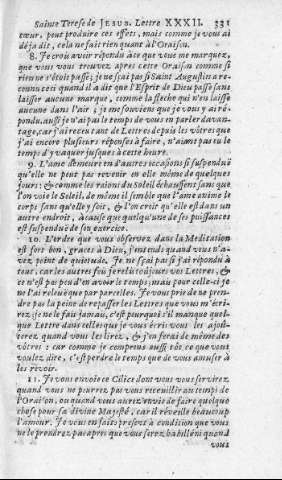 Sainte Terese de JESUS. Lettre XXXII. 331
cœur, peut produire ces effets, mais comme je vous ai
déja dit, cela ne fait rien quant à l'Oraison.
8. Je crois avoir répondu à ce que vous me marquez,
que vous vous trouvez après cette Oraison comme si
rien ne s'étoit passé; je ne sçai pas si Saint Augustin a re-
connu ceci quand il a dit que l'Esprit de Dieu passe sans
laisser aucune marque, comme la fleche qui n'en laisse
aucune dans l'air; je me souviens que je vous y ai ré-
pondu, aussi je n'ai pas le temps de vous en parler davan-
tage, car j'ai receu tant de Lettres depuis les vôtres que
j'ai encore plusieurs réponses à faire, n'aiant pas eu le
temps d'y vaquer jusques à cette heure.
9. L'ame demeure en d'autres occasions si suspenduë
qu'elle ne peut pas revenir en elle même de quelques
jours: & comme les raions du Soleil échauffent sans que
l'on voie le Soleil, de même il semble que l'ame anime le
corps sans qu'elle y soit, & l'on croit qu'elle est dans un
autre endroit, à cause que quelqu'une de ses puissances
est suspenduë de son exercice.
10. L'ordre que vous observez dans la Meditation
est fort bon, graces à Dieu, j'entends quand vous n'a-
vez point de quietude. Je ne sçai pas si j'ai répondu à
tout, car les autres fois je relis toûjours vos Lettres, &
ce n'est pas peu d'en avoir le temps; mais pour celle-ci je
ne l'ai releuë que par parcelles. Je vous prie de ne pren-
dre pas la peine de repasser les Lettres que vous m'écri-
rez; je ne le fais jamais, c'est pourquoi s'il manque quel-
que Lettre dans celles que je vous écris vous les ajoû-
terez quand vous les lirez, & j'en ferai de même des
vôtres: car comme je comprens aussi-tôt ce que vous
voulez dire, c'est perdre le temps que de vous amuser à
les revoir.
11. Je vous envoie ce Cilice dont vous vous servirez
quand vous ne pourrez pas vous recueillir au temps de
l'Oraison, ou quand vous aurez envie de faire quelque
chose pour sa divine Majesté, car il réveille beaucoup
l'amour. Je vous en fais present à condition que vous
ne le prendrez pas après que vous serez habillée quand
vous